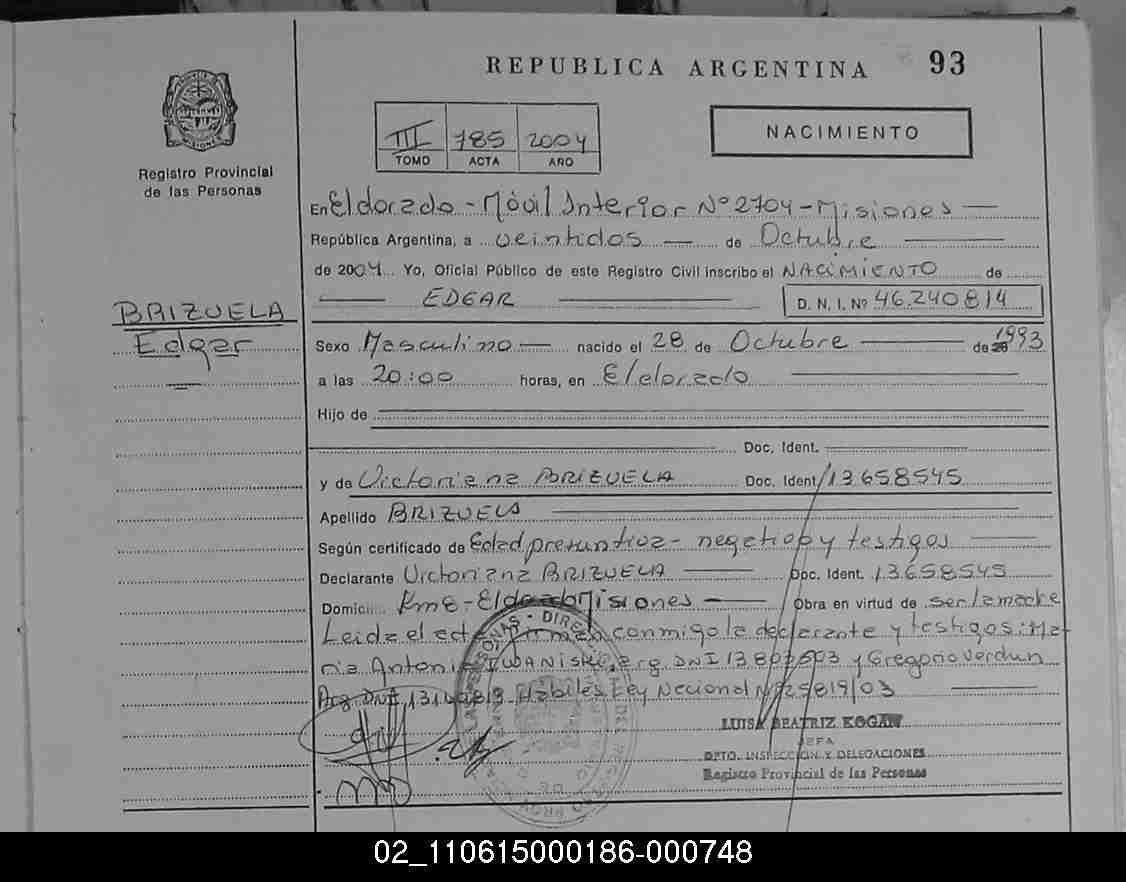 REPUBLICA ARGENTINA 93
III 785 2004
TOMO ACTA AÑO
NACIMIENTO
Registro Provincial
de las Personas
BRIZUELA
Edgar
En Eldorado - Móvil Interior Nº 2704 - Misiones
República Argentina, a veintidos de Octubre
de 2004 Yo, Oficial Público de este Registro Civil inscribo el NACIMIENTO de
EDGAR D. N. I. Nº 46.240.814
Sexo Masculino nacido el 28 de Octubre de 1993
a las 20:00 horas, en Eldorado
Hijo de
Doc. Ident.
y de Victoriana BRIZUELA Doc. Ident. 13658545
Apellido BRIZUELA
Según certificado de Edad presuntiva - negativa y testigos
Declarante Victoriana BRIZUELA Doc. Ident. 13658545
Domicilio Km 8 - Eldorado Misiones Obra en virtud de ser la madre
Leida el acta firman conmigo la declarante y testigos: Ma-
ria Antonia Arg. DNI y Gregorio Verdun
Arg. DNI Hábiles Ley Nacional Nº 25819/03
LUISA BEATRIZ KOGAN
JEFA
DPTO. INSPECCION Y DELEGACIONES
Registro Provincial de las Personas
02_110615000186-000748